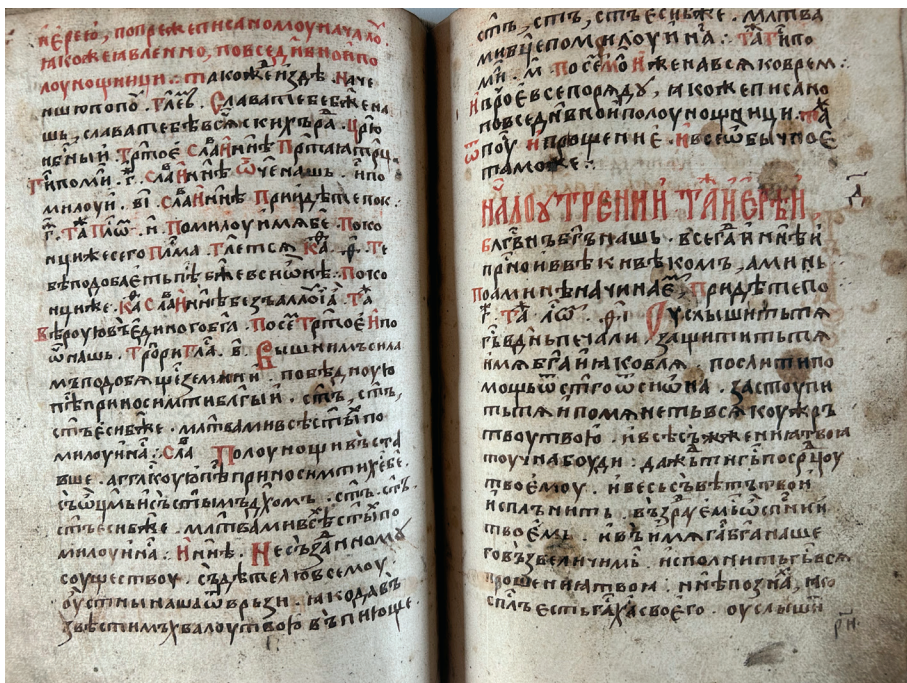 їерею, попрежеписанномоуначалоу
ꙗкожеꙗвленно, повседн҃внойпо
лоунощници : такожеиздѣ . наче
ншюпопоу . гл҃еть . Славатебебж҃ена
шь, славатебѣвсѧскихъра . Цр҃ю
нбн҃ый . Трст҃ое сла инн҃ѣ Прт҃аѧтрц
Гипоми . г҃ . сла инн҃ѣ Ѿченашь . ипо
милоуй . в҃і . сла инн҃ѣ прїидѣтепок :
г҃ . та пл҃ѡ . н҃ . Помилоуимѧбе . Поко
нцижесего пл҃ма . глетсѧ ка . Те
бѣподобаетьпѣ бж҃евсиѡнѣ . Поко
нциже . Ка сла инн҃ѣ безъаллоїа . Та
Вѣроуювъединогобг҃а . Посе трст҃ое ипо
ѿнашь . Трори гла . в҃ . Вышнимъсила
мъподобѧщесѧземнїи . побѣдноую
пѣприносимтиблг҃ый . ст҃ъ, ст҃ъ,
ст҃ъесибж҃е . млт҃вамивсѣст҃ыпо
милоуйна : сла Полоунощивъста
вше . агглкоуюпѣприносимтихе҃бе .
съѡц҃мьисъст҃ымъдх҃омъ . ст҃ъ . ст҃ъ .
ст҃ъесибж҃е . млт҃вамивсѣст҃ыпо
милоуйна : Инн҃ѣ . Несъзанномоу
соуществоу . съдѣтелювсемоу .
оустнынашаѿврьзи . ꙗкодавъ
звѣстимъхвалоутвою въпиюще .
ст҃ъ, ст҃ъ, ст҃ъесибж҃е . млт҃ва
мивц҃епомилоуйна : та Гипо
ми . м҃ . Посемо иженавсѧковрем :
ивроевсепорѧду, ꙗкожеписано
повседн҃внойполоунощници . Та
ѿпоу ипрощенїе . ивсеѡбычное
таможе :
НАЛОУТРЕНИЙ ТА ЇЕРЕЙ
д҃
блгв҃нъбг҃ънашь . всегдаинн҃ѣи
прн҃оивъвѣкивѣкомъ, аминь
Поаминѣначинае, прїидѣтепо
г҃ . Та ѱл҃ѡ . ѳ҃і Оуслышитьтѧ
гь҃вдн҃ьпечали защититьтѧ
имѧбг҃аиꙗковлѧ . послитипо
мощьѿст҃гоѿсиѡна . застоупи
тьтѧипомѧнетьвсѧкоужръ
твоутвою . ивсѣсъжженїꙗтвоꙗ
тоучнабоуди : дажьтигьпосрц҃оу
твоемоу . ивесьсъвѣтътвой
исплънить . възрꙋемьѡспн҃їи
твоемь . ивъимѧга҃бг҃анаше
говъзвеличимь исполнитьгьвсѧ
прошенїꙗтвоꙗ : нн҃ѣпозна, ꙗко
спл҃ъестьга҃ха҃своего . оуслыши
рн҃